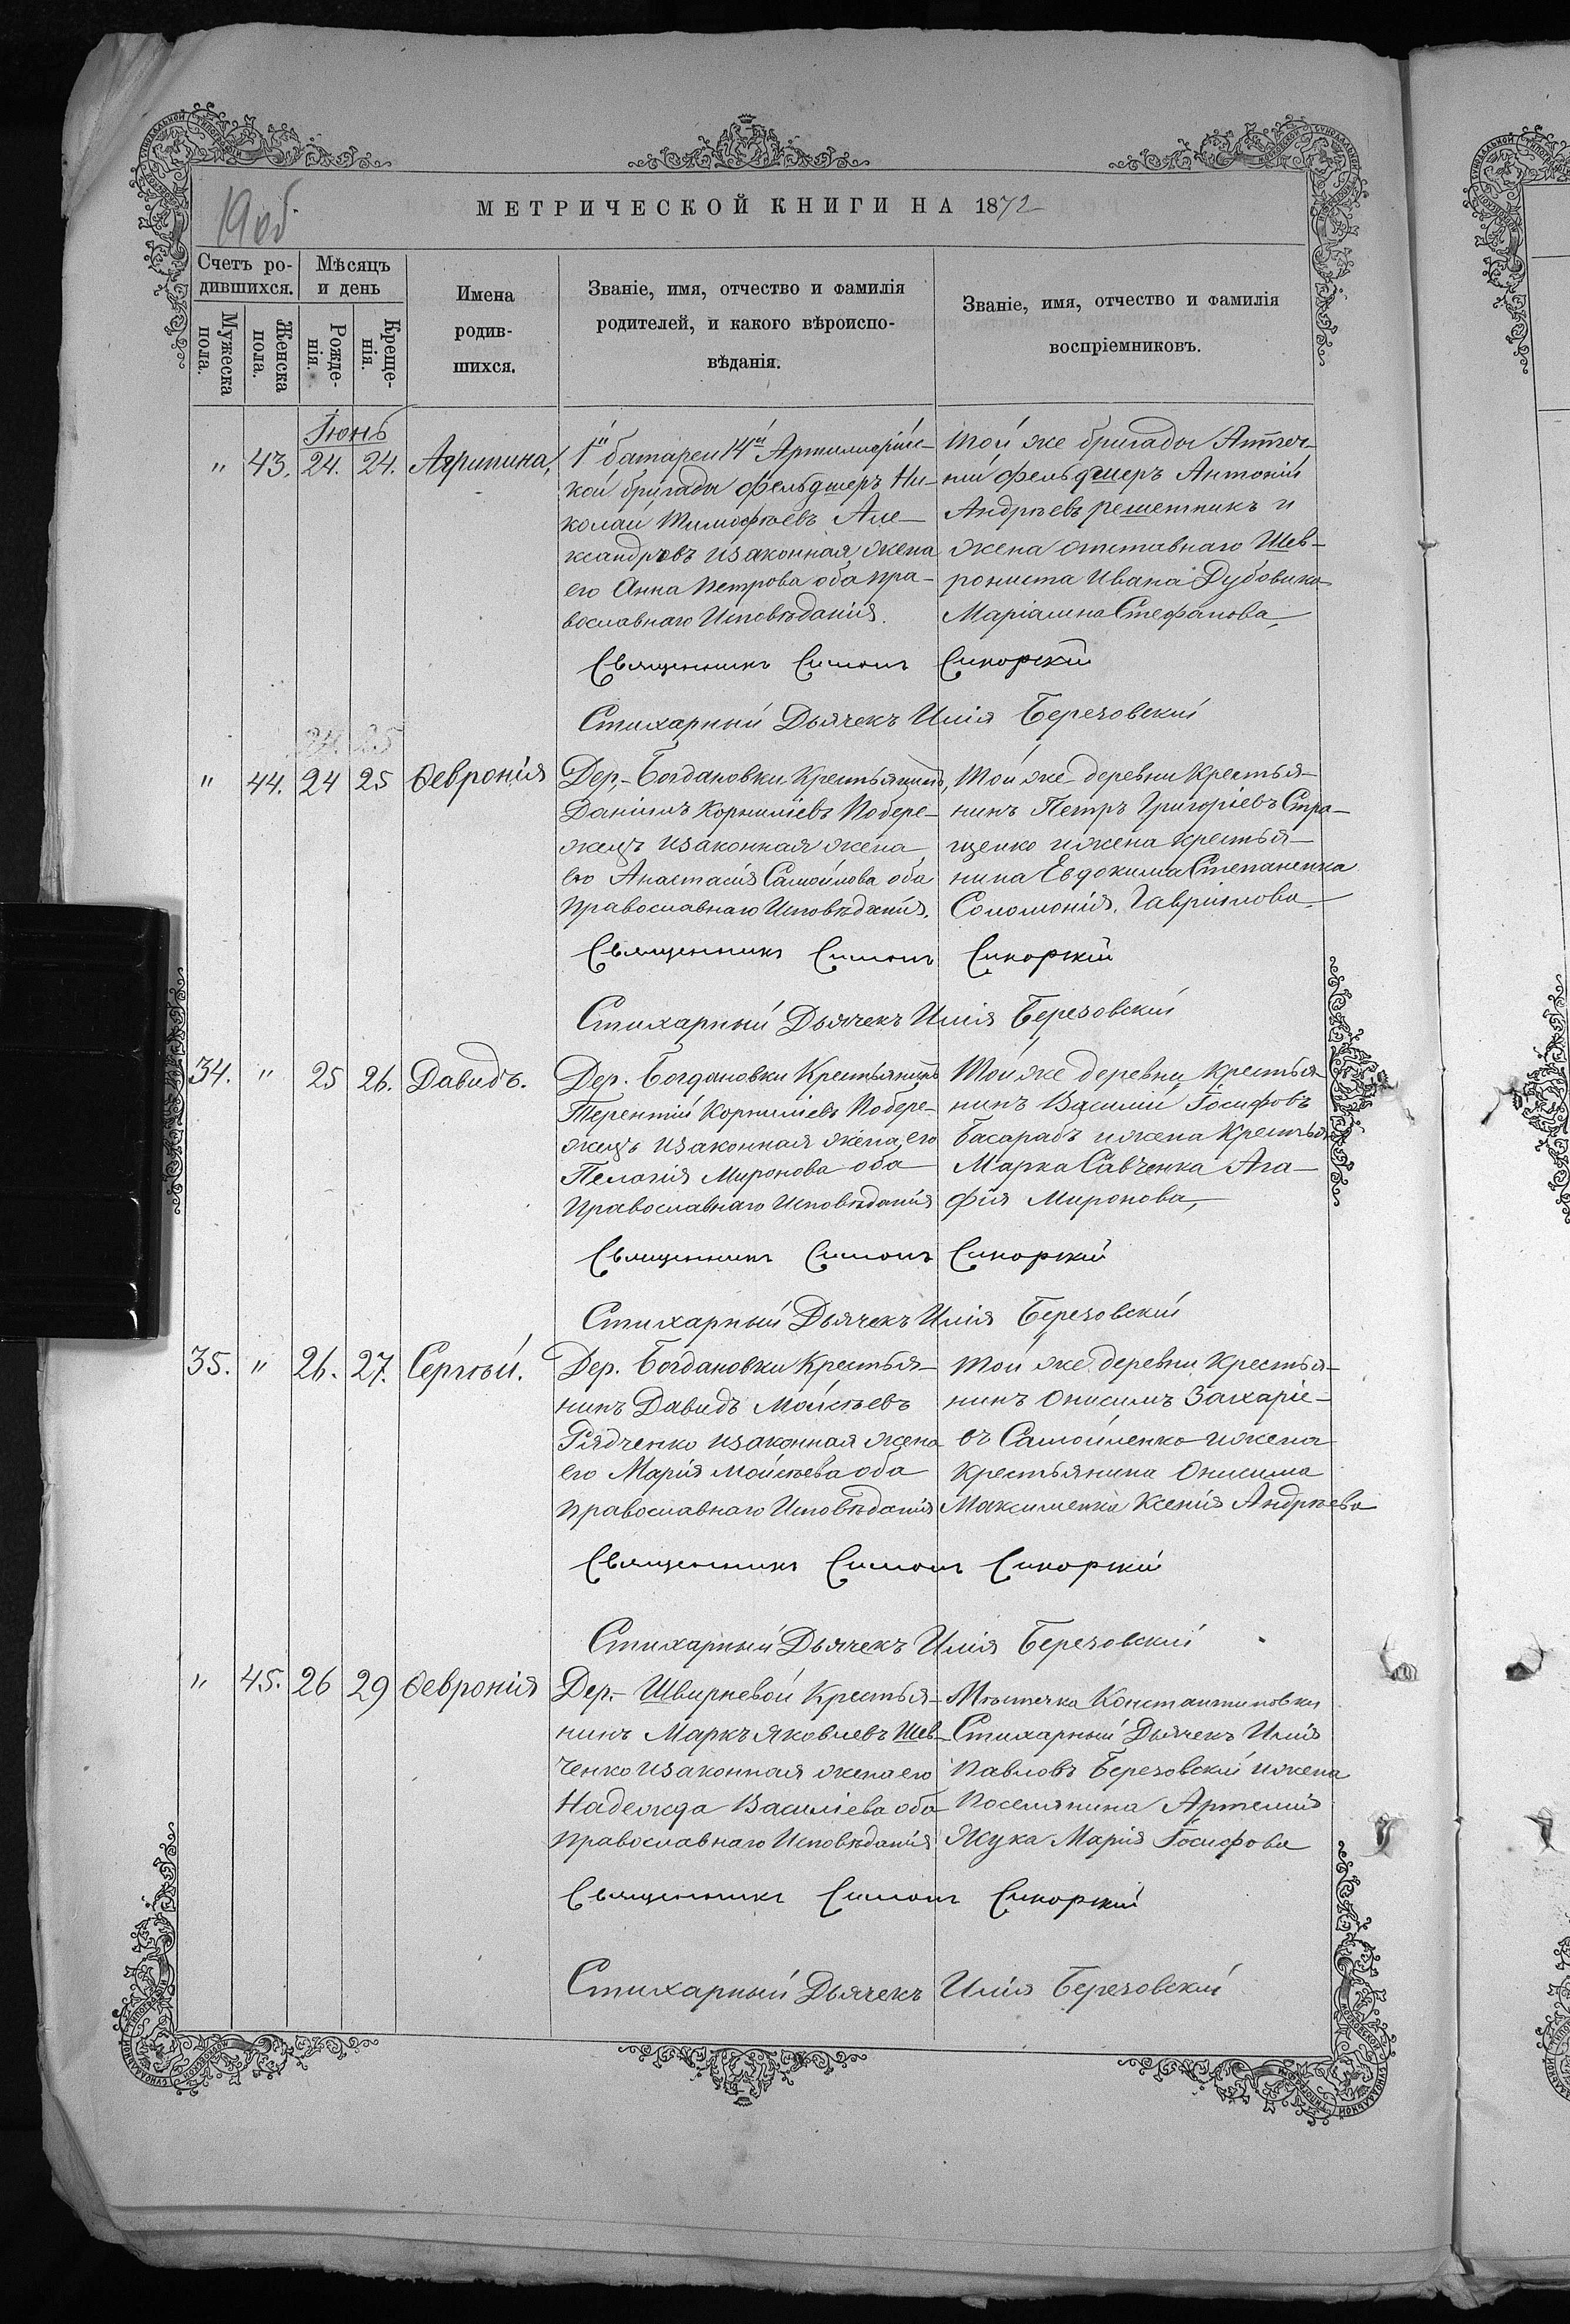 19 об.
МЕТРИЧЕСКОЙ КНИГИ НА 1872
Счетъ ро-
дившихся.
Мѣсяцъ
и день
Мужеска
пола.
Женска
пола.
Рожде-
нія.
Креще-
нія.
Имена
родив-
шихся.
Званіе, имя, отчество и фамилія
родителей, и какого вѣроиспо-
вѣданія.
Званіе, имя, отчество и фамилія
воспріемниковъ.
Іюнь
" 43. 24. 24. Агрипина,
1й батареи 14й Артиллерійс-
кой бригады фельдшеръ Ни-
колай Тимофѣевъ Але-
ксандровъ изаконная жена
его Анна Петрова оба пра-
вославнаго Исповѣданія.
Той же бригады Аптеч-
ный фельдшеръ Антоній
Андрѣевъ решетникъ и
жена отставнаго Шев-
рониста Ивана Дубовика
Маріамна Стефанова,
Священникъ Симонъ Сикорскій
Стихарный Дьячекъ Илія Березовскій
24 25
" 44. 24 25 Ѳевронія
Дер,- Богдановки Крестьянинъ,
Даніилъ Корниліевъ Побере-
жецъ изаконная жена
его Анастасія Самойлова оба
Православнаго Исповѣданія.
Той же деревни Крестья-
нинъ Петръ Григоріевъ Стра-
щенко ижена крестья-
нина Евдокима Степаненка
Соломонія. Гавріилова
Священникъ Симонъ Сикорскій
Стихарный Дьячекъ Илія Березовскій
34. " 25 26. Давидъ.
Дер. Богдановки Крестьянинъ
Терентій Корниліевъ Побере-
жецъ изаконная жена его
Пелагія Миронова оба
Православнаго Исповѣданія
Той же деревни Крестья
нинъ Василій Іосифовъ
Басарабъ ижена Крестья
Марка Савченка Ага-
фія Миронова,
Священникъ Симонъ Сикорскій
Стихарный Дьячекъ Илія Березовскій
35. " 26. 27. Сергѣй.
Дер. Богдановки Крестья-
нинъ Давидъ Мойсѣевъ
Рядченко изаконная жена
его Марія Мойсѣева оба
православнаго Исповѣданія
Той же деревни Крестья-
нинъ Онисимъ Захаріе-
въ Самойленко ижена
Крестьянина Онисима
Максименка Ксенія Андрѣева
Священникъ Симонъ Сикорскій
Стихарный Дьячекъ Илія Березовскій
" 45. 26 29 Ѳевронія
Дер.- Швырневой Крестья-
нинъ Маркъ Яковлевъ Шев-
ченко изаконная жена его
Надежда Василіева оба
православнаго Исповѣданія
Мѣстечка Константиновки
Стихарный Дьячекъ Илія
Павловъ Березовскій ижена
Поселянина Артемія
Жука Марія Іосифова
Священникъ Симонъ Сикорскій
Стихарный Дьячекъ Илія Березовскій